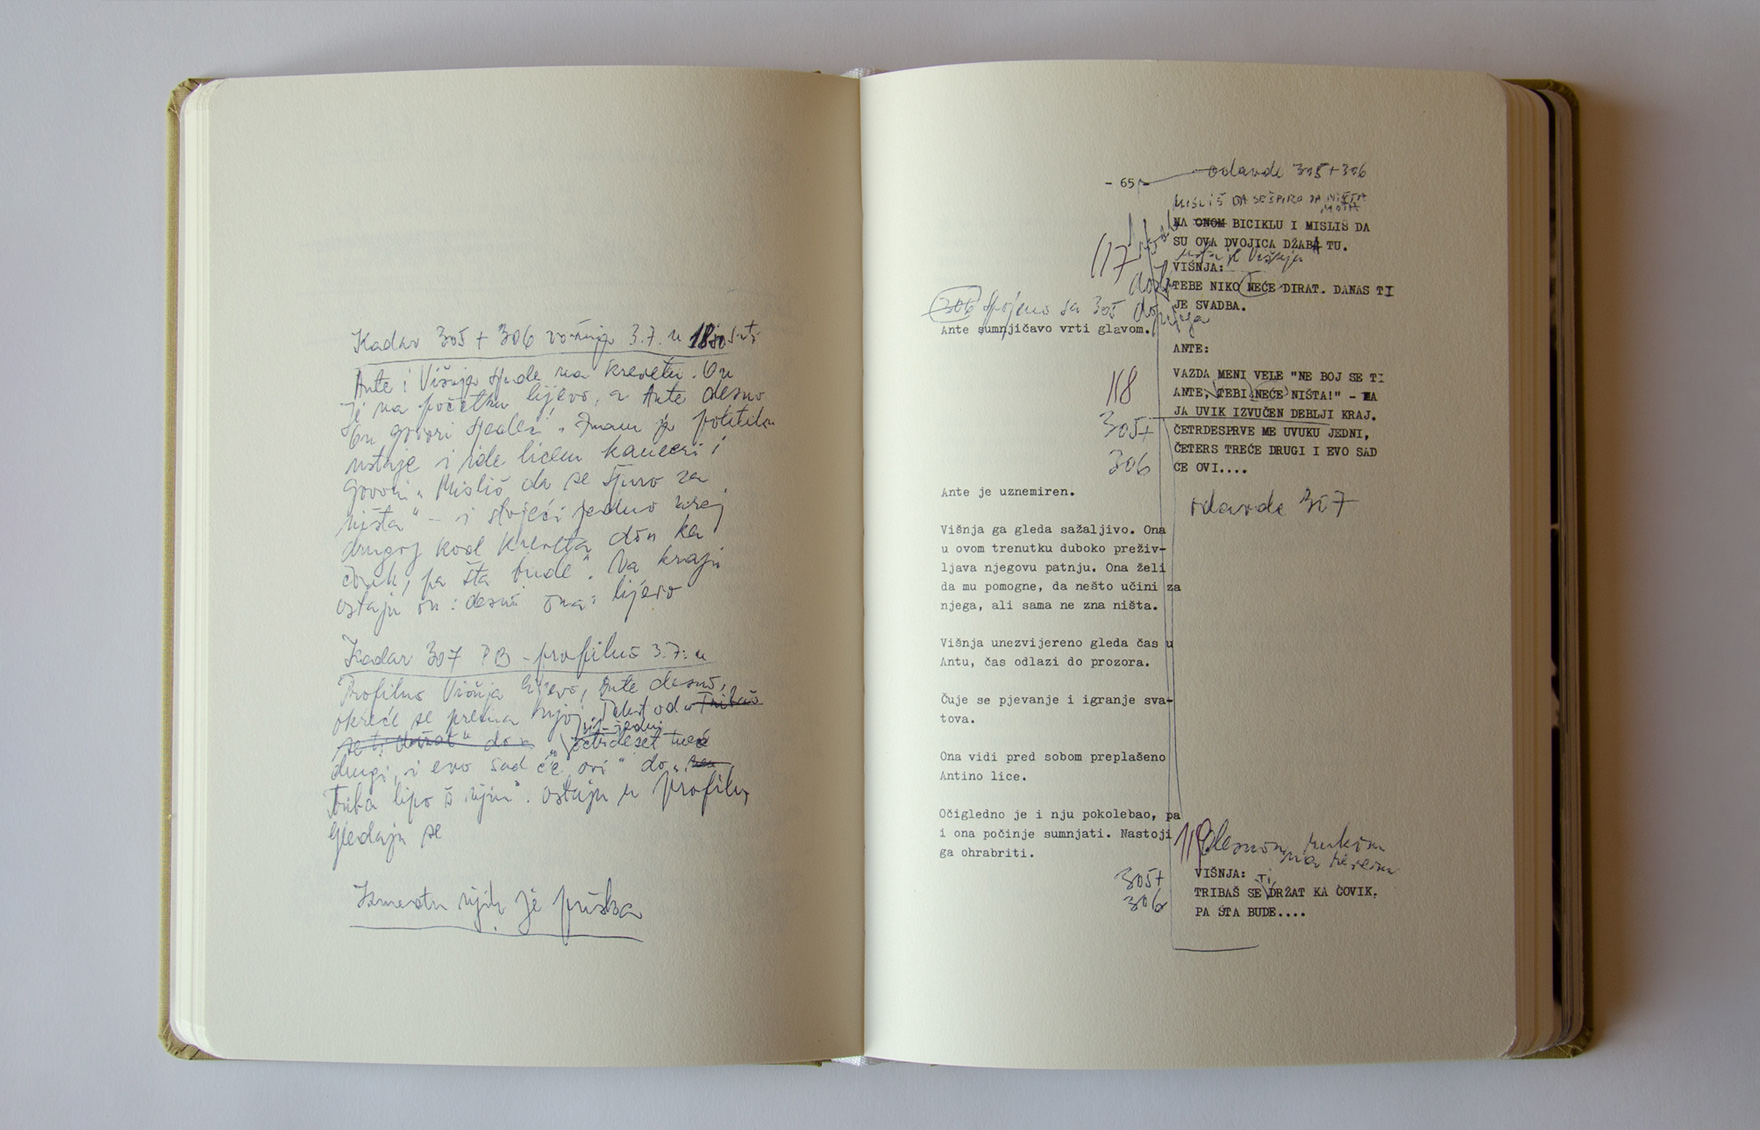 Kadar 305 + 306 vožnja 3.7. u
Ante i Višnja sjede na krevetu. On
je na početku lijevo, a Ante desno
On govori sjedeć "Imam ja
ustaje i ide licem kameri i
govori "Misliš da se špiro za
ništa" – i stojeći jedno kraj
drugog kod kreveta do ka
čovik, pa šta bude". Na kraju
ostaju on: desno ona: lijevo
Kadar 307 PB - profilus 3.7. u
Profilus Višnja lijevo, Ante desno,
okreće se prema njoj, Tekst od "Tribaš
se ti držat" do
četrdeset treće
drugi, i evo sad će ovi" do
Triba lipo š njim". Ostaju u profilu,
gledaju se
Između njih je puška
- 65 -
odavde 305+306
MISLIŠ DA SE ŠPIRO ZA NIŠTA
NA ONOM BICIKLU I MISLIŠ DA
SU OVA DVOJICA DŽABA TU.
117
VIŠNJA:
TEBE NIKO NEĆE DIRAT. DANAS TI
JE SVADBA.
306 spojeno sa 305
Ante sumnjičavo vrti glavom.
ANTE:
118
VAZDA MENI VELE "NE BOJ SE TI
ANTE, TEBI NEĆE NIŠTA!" - A
JA UVIK IZVUČEN DEBLJI KRAJ.
305+
ČETRDESPRVE ME UVUKU JEDNI,
ČETERS TREĆE DRUGI I EVO SAD
306
ĆE OVI....
Ante je uznemiren.
odavde 307
Višnja ga gleda sažaljivo. Ona
u ovom trenutku duboko preživ-
ljava njegovu patnju. Ona želi
da mu pomogne, da nešto učini za
njega, ali sama ne zna ništa.
Višnja unezvijereno gleda čas u
Antu, čas odlazi do prozora.
Čuje se pjevanje i igranje sva-
tova.
Ona vidi pred sobom preplašeno
Antino lice.
Očigledno je i nju pokolebao, pa
i ona počinje sumnjati. Nastoji
ga ohrabriti.
119
desnom rukom
na
305+
306
VIŠNJA:
TRIBAŠ SE TI DRŽAT KA ČOVIK,
PA ŠTA BUDE....